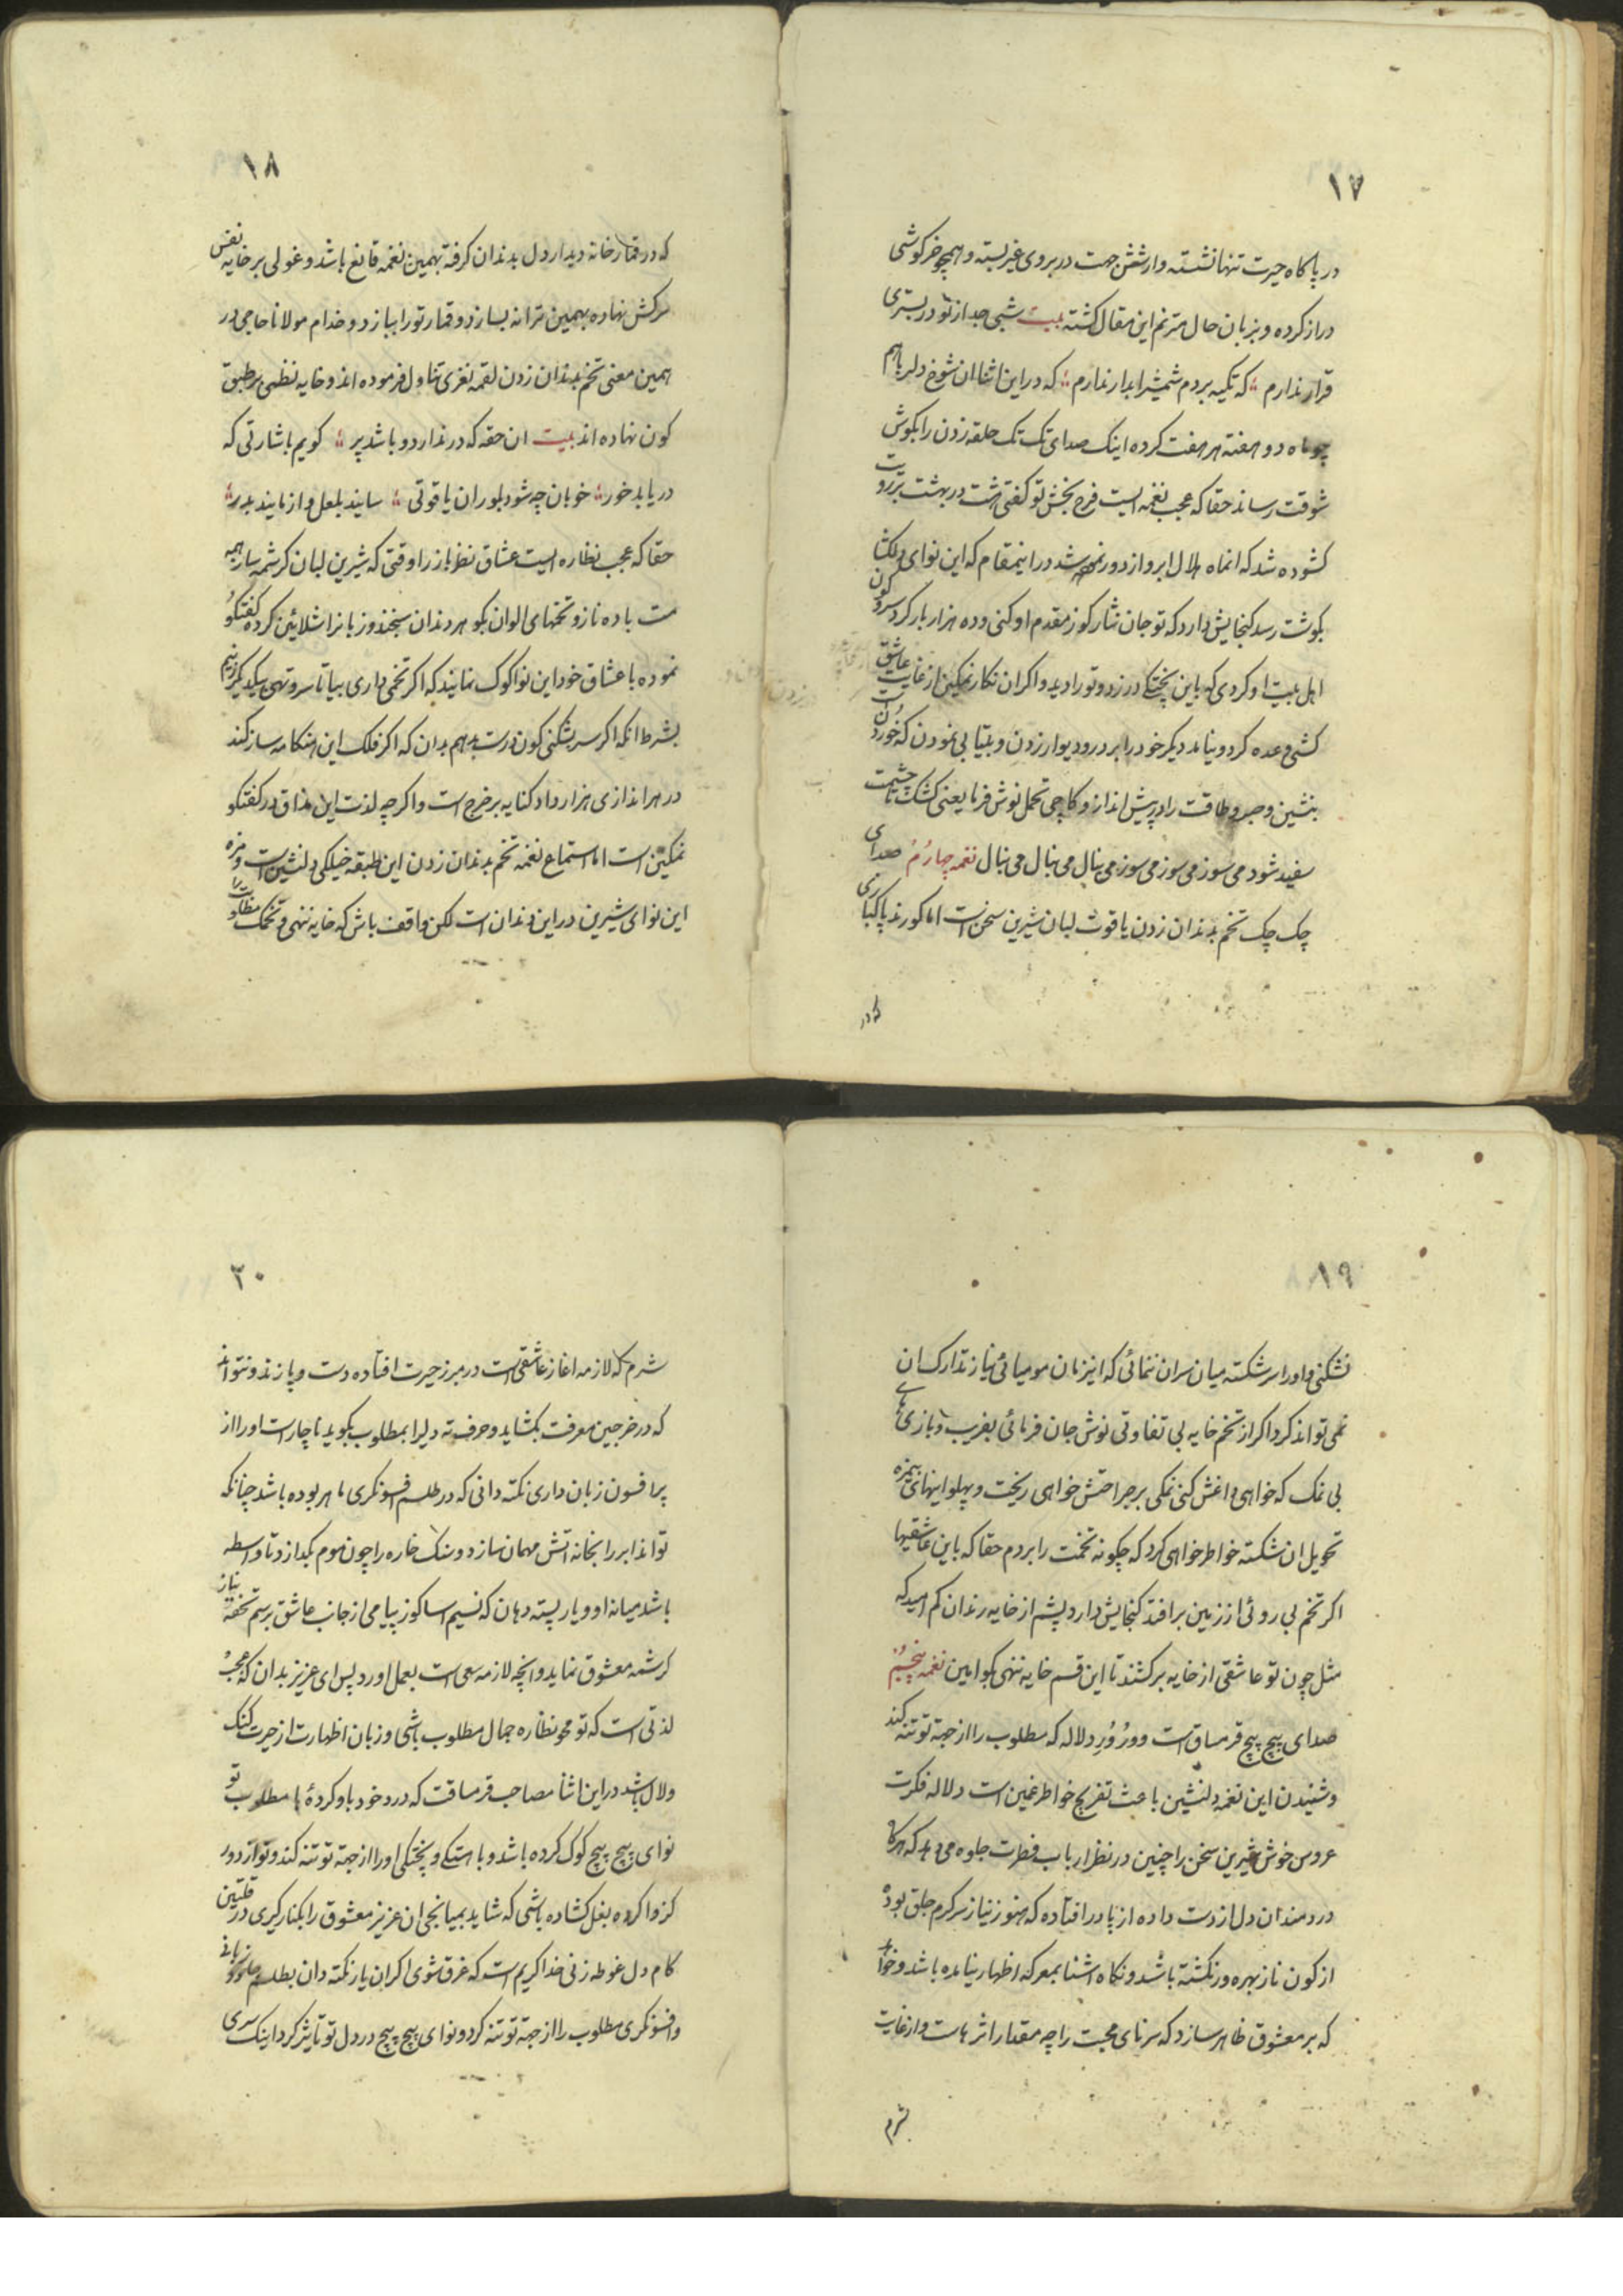 ۱۷
در پاکاه حیرت تنها نشسته و از شش جهت در بروی غیر بسته و همچو خرکوشی
دراز کرده و بزبان حال مترنم این مقال کشته بیت شبی جدا ز تو در بستری
قرار ندارم که تکیه بر دم شمشیر ابدار ندارم که در این اثنا ان شوخ دلربا هم
چو ماه دو هفته هر هفت کرده اینک صدای تک تک حلقه زدن را بکوش
شوقت رساند حقا که عجب نغمه ایست فرح بخش تو کفتی هشت در بهشت بر رویت
کشوده شد که انماه هلال ابرو از دور نمی شد در اینمقام که این نوای دلکشا
بکوشت رسد کنجایش دارد که تو جان نثار کوز مقدم او کنی و ده هزار بار کرد سر و کون
اهل بیت او کردی که باین پختکی در زد و تو را دید و اکر ان نکار نمکین از غایت عاشق
کشی وعده کرد و نیامد دیکر خود را بر در و دیوار زدن و بیتابی نمودن که خوردن
بنشین و صبر و طاقت را در پیش انداز و کاچی تحمل نوش فرما یعنی کشک تا چشمت
سفید شود می سوز می سوز می سوز می بنال می بنال می بنال نغمه چهارم صدای
چک چک تخم بدندان زدن یاقوت لبان شیرین سخن است اما کو رند پاکبازی
که در
۱۸
که در قمارخانه دیدار دل بدندان کرفته بهمین نغمه قانع باشد و غولی بر خایه نفس
سرکش نهاده بهمین ترانه بسازد و قمار تو را ببازد و خدام مولانا حاجی در
همین معنی تخم بدندان زدن لقمه نغزی تناول فرموده اند و خایه نظمی بر طبق
کون نهاده اند بیت ان حقه که در ندارد و باشد پر کویم باشارتی که
دریابد خور خوبان چه شود بلور ان یاقوتی سایند بلعل و ازمایند بدر
حقا که عجب نظاره ایست عشاق نظرباز را وقتی که شیرین لبان کرشمه ساز همه
مست باده ناز و تخمهای الوان بکو هر دندان سنجند و زبانرا شلائین کرده کفتکو
نموده با عشاق خود این نوا کوک نمایند که اکر تخمی داری بیا تا سر و تهی بیکدیکر زنیم
بشرط انکه اکر سر بشکنی کون درست بدهم بدان که اکر فلک این هنکامه ساز کند
در هر اندازی هزار داد کنایه بر خرج است و اکر چه لذت این مذاق در کفتکو
نمکین است اما استماع نغمه تخم بدندان زدن این طبقه خیلکی دلنشین است و مزه
این نوای شیرین در این دندان است لکن واقف باش که خایه ننهی و تخمک مطلوبت را
۱۹
نشکنی و او را سر شکسته میان سران ننمائی که اینزمان مومیائی نیاز تدارک ان
نمی تواند کرد اکر از تخم خایه بی تفاوتی نوش جان فرمائی بفریب و بازی های
بی نمک که خواهی داغش کنی نمکی بر جراحتش خواهی ریخت و پهلوانیهای بیمزه
تحویل ان شکسته خواطر خواهی کرد که چکونه تخمت را بردم حقا که باین عاشقیها
اکر تخم بی روئی از زمین بر افتد کنجایش دارد پشم از خایه رندان کم امید که
مثل چون تو عاشقی از خایه برکشند تا این قسم خایه ننهی بکو امین نغمه پنجم
صدای پیچ پیچ قرمساق است و ور ور دلاله که مطلوب را از جهة تو تنه کند
و شنیدن این نغمه دلنشین باعث تفریح خواطر غمین است دلاله فکرت
عروس خوش شیرین سخن را چنین در نظر ارباب فطرت جلوه می دهد که هر کاه
دردمندان دل از دست داده از پا در افتاده که هنوز نیاز سر کرم جلق بوده
از کون ناز بهره ور نکشته باشد و نکاه اشنا بمعرکه اظهار نیامده باشد و خواهد
که بر معشوق ظاهر سازد که سرنای محبت را چه مقدار اثرهاست و از غایت
شرم
۲۰
شرم که لازمه اغاز عاشقی است در مبرز حیرت افتاده دست و پا زند و نتواند
که در خرجین معرفت بکشاید و حرف ته دلیرا بمطلوب بکوید ناچار است او را از
پر افسون زبان داری نکته دانی که در طلسم افسونکری ماهر بوده باشد چنانکه
تواند ابر را بخانه اتش مهمان سازد و سنک خاره را چون موم بکدازد تا واسطه
باشد میانه او و یار پسته دهان که نسیم اسا کوز پیامی از جانب عاشق برسم تحفه نیاز
کرشمه معشوق نماید و انچه لازمه سعی است بعمل اورد پس ای عزیز بدان که عجب
لذتی است که تو محو نظاره جمال مطلوب باشی و زبان اظهارت از حیرت کنک
و لال باشد در این اثنا مصاحب قرمساقت که درد خود باو کرده با مطلوب تو
نوای پیچ پیچ کوک کرده باشد و باهستکی و پختکی او را از جهة تو تنه کند و تو از دور
کز وا کرده بغل کشاده باشی که شاید بمیانجی ان عزیز معشوق را بکنار کیری در قلتین
کام دل غوطه زنی خدا کریم است که غرق شوی اکر ان یار نکته دان بطلسم جادو زبانی
و افسونکری مطلوب را از جهة تو تنه کرد و نوای پیچ پیچ در دل تو تاثیر کرد اینک سری